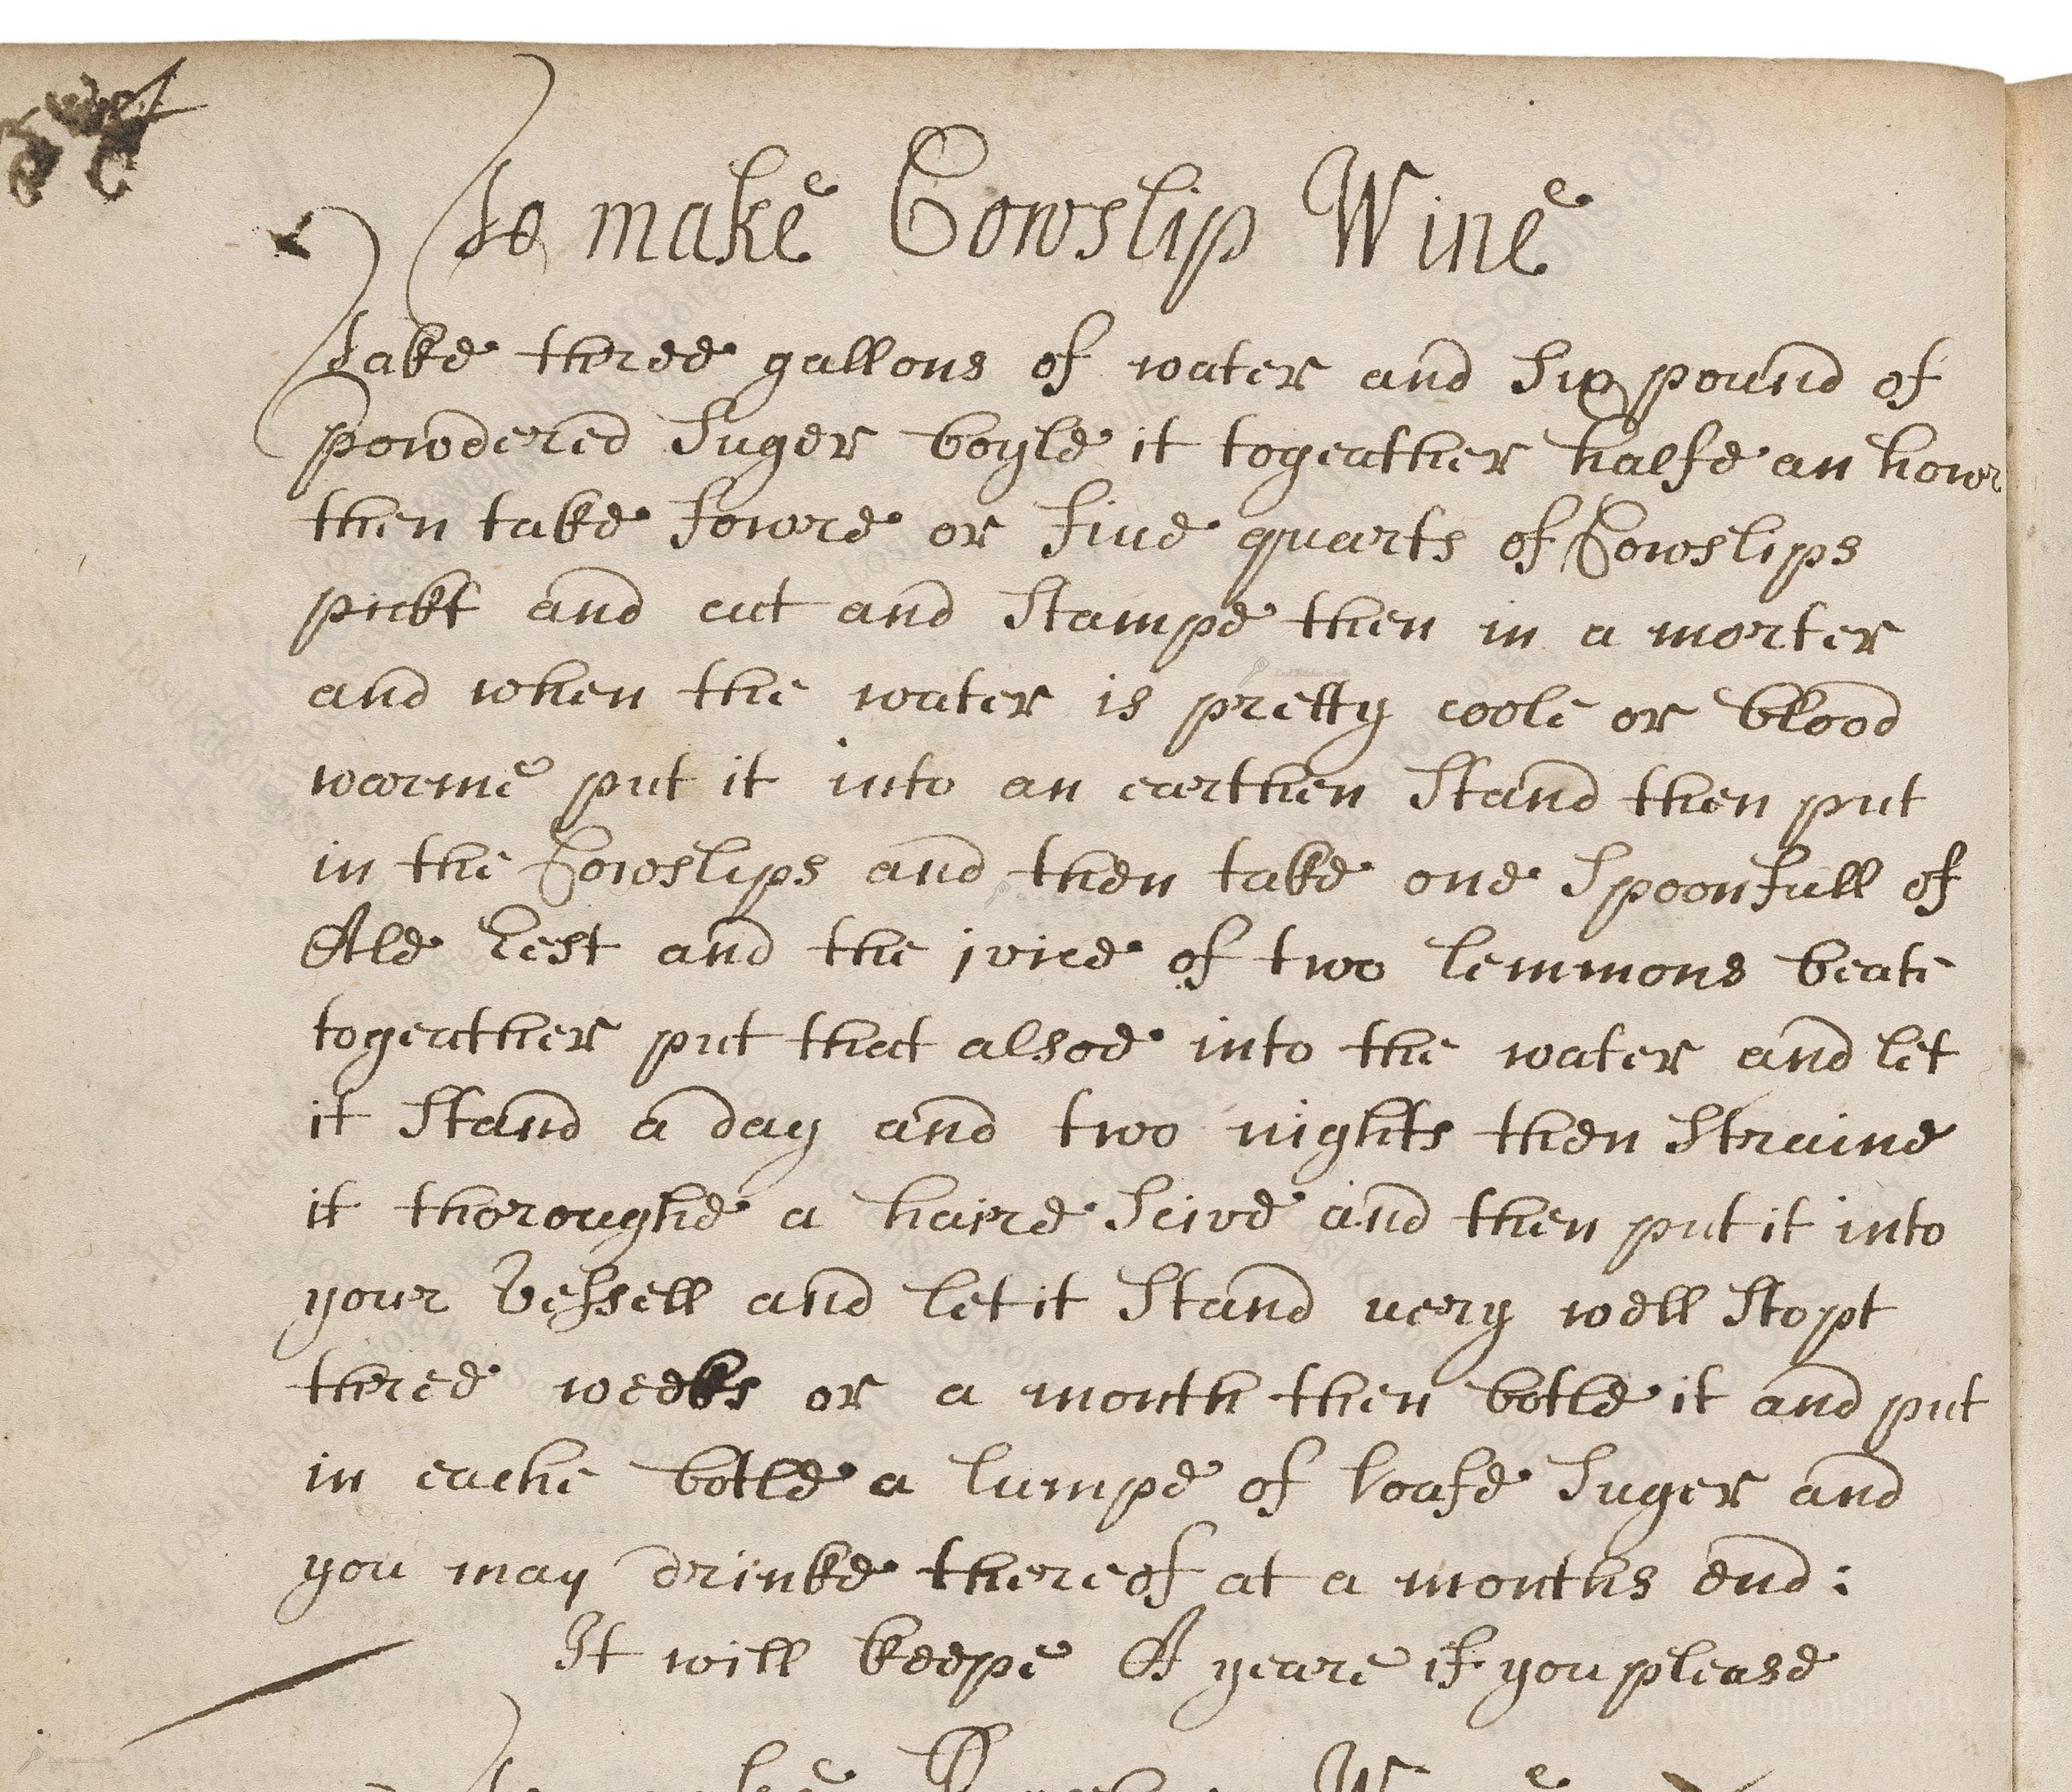 To make Cowslip Wine
Take three gallons of water and Six pound of
powdered Suger boyle it togeather halfe an howr
then take fowre or five quarts of Cowslips
pickt and cut and Stampe then in a morter
and when the water is pretty coole or blood
warme put it into an earthen Stand then put
in the Cowslips and then take one Spoonfull of
Ale Yest and the juice of two lemmons beate
togeather put that alsoe into the water and let
it Stand a day and two nights then Straine
it thoroughe a haire Seive and then put it into
your Vessell and let it Stand very well Stopt
three weeks or a month then botle it and put
in eache botle a lumpe of loafe Suger and
you may drinke thereof at a months end:
It will keepe A yeare if you please